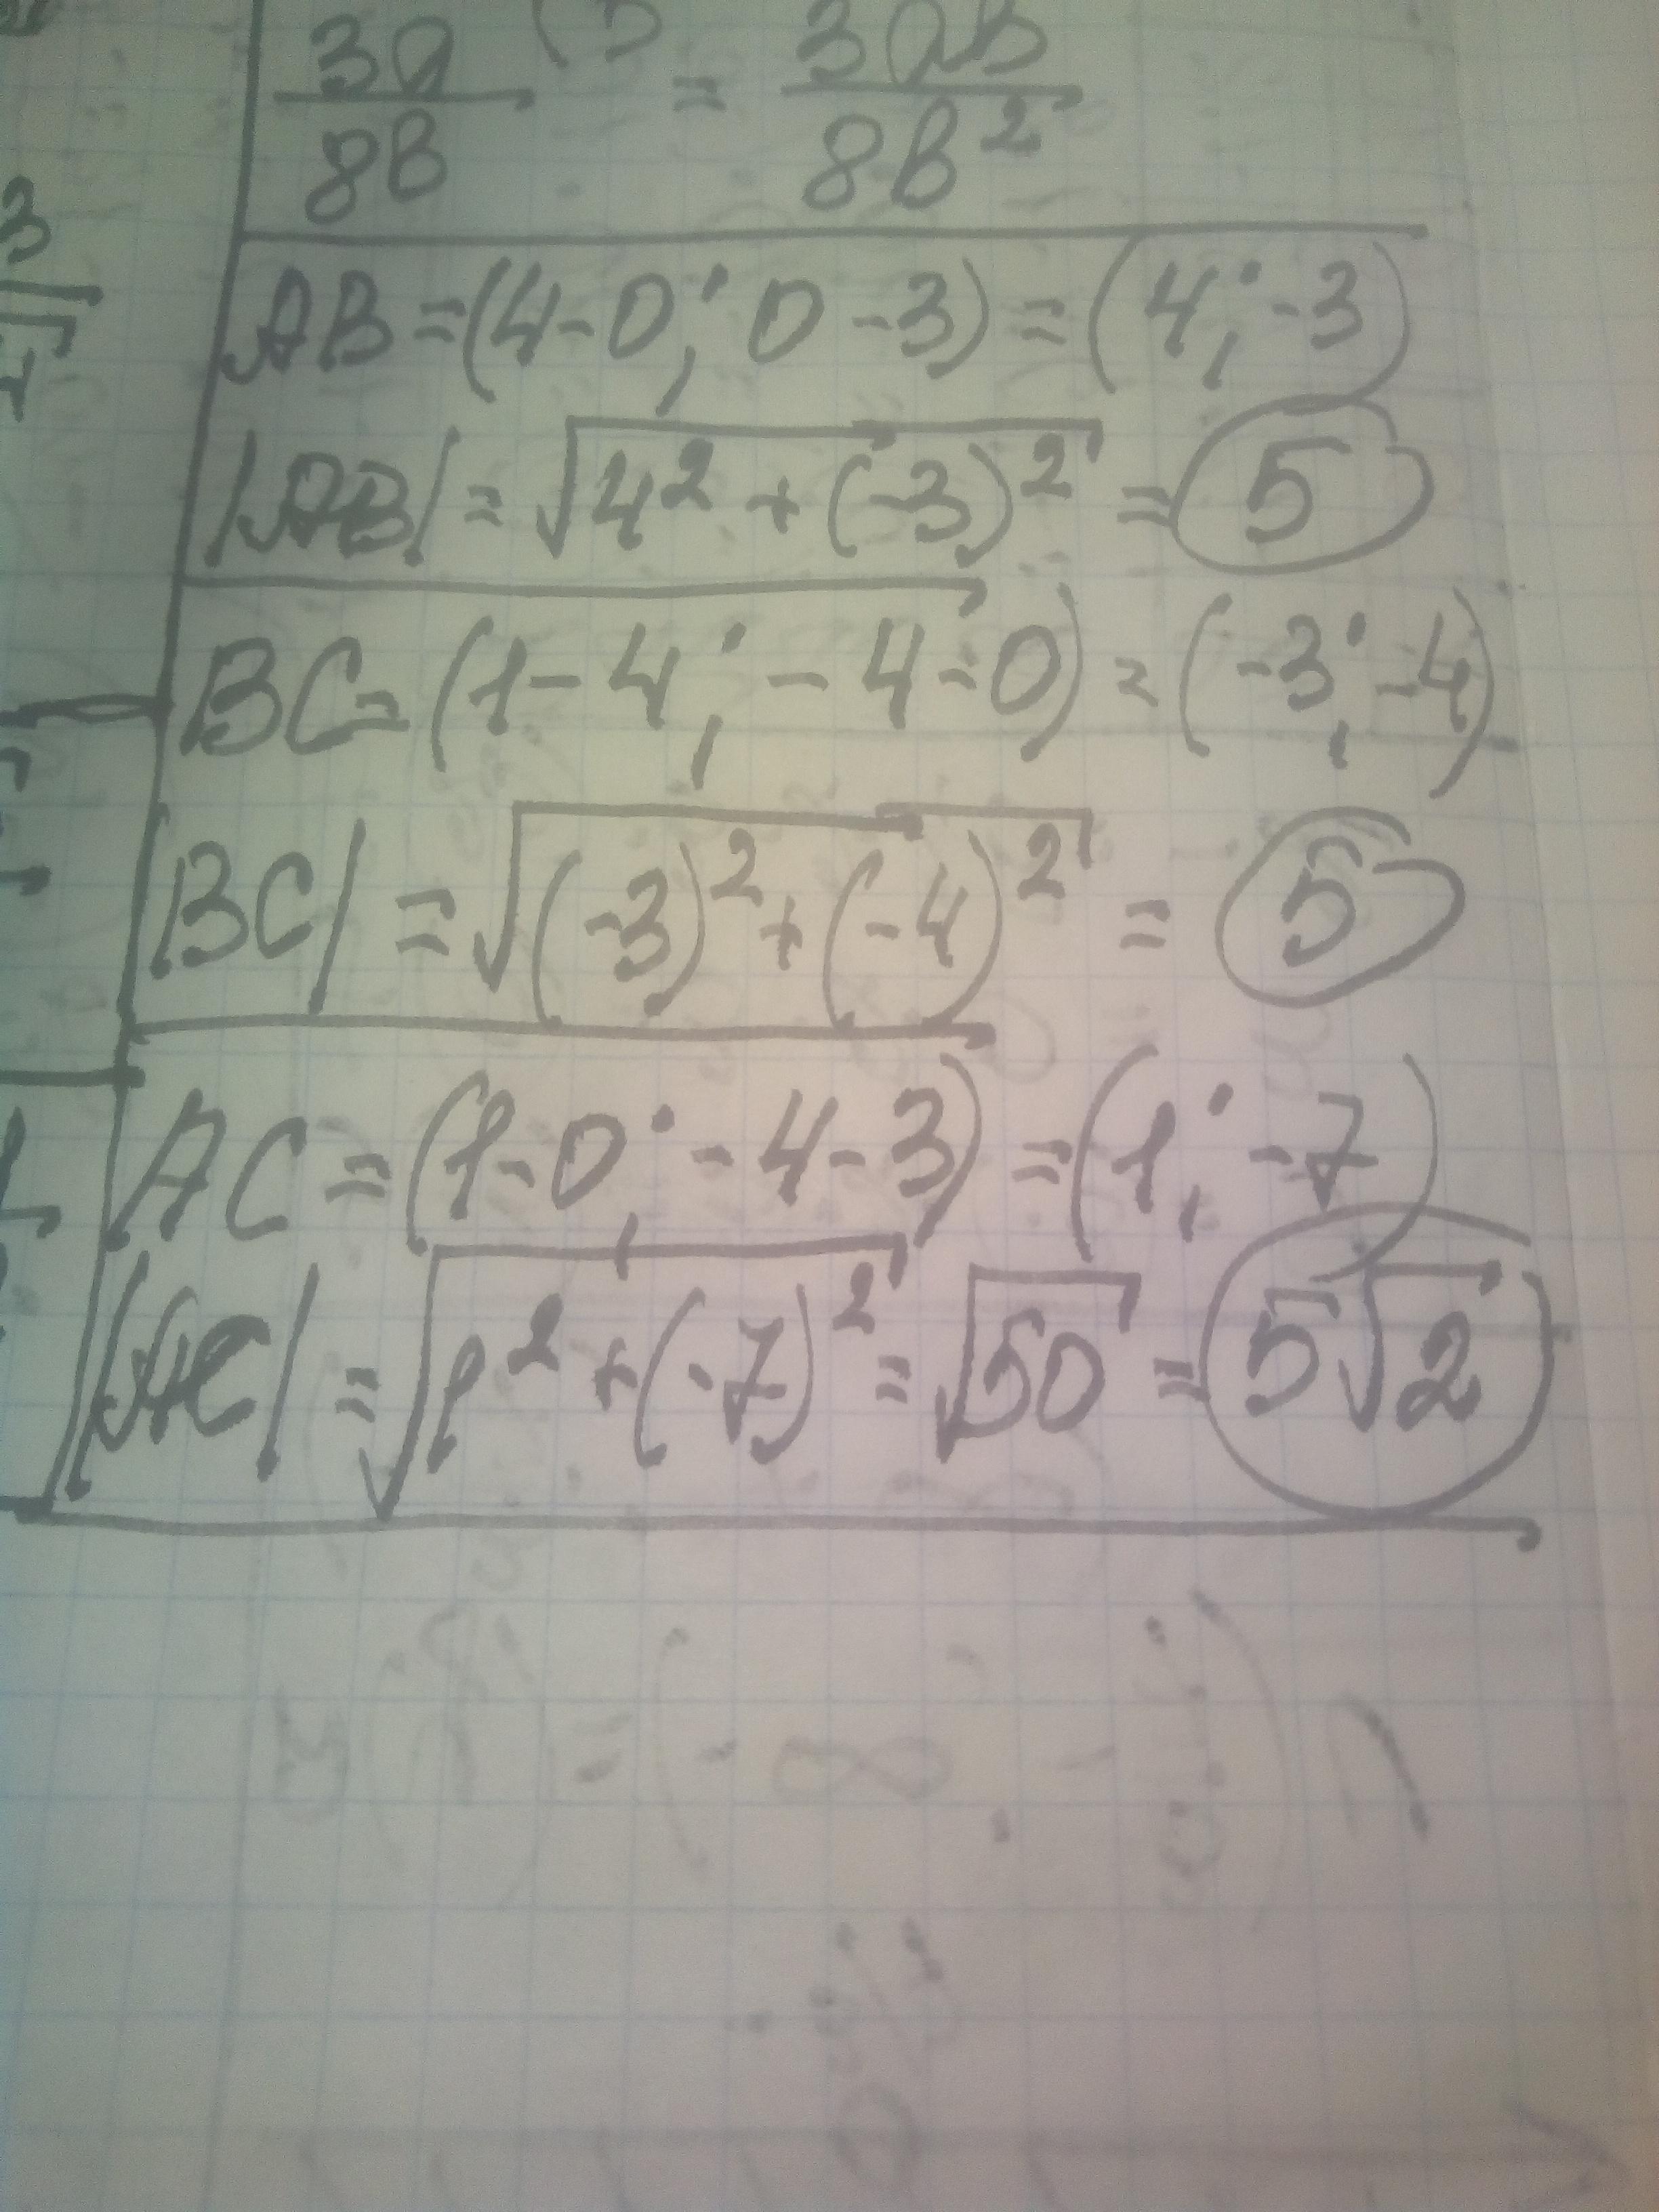 3a/8b (b = 3ab/8b²
AB = (4-0; 0-3) = (4; -3)
|AB| = √(4² + (-3)²) = 5
BC = (1-4; -4-0) = (-3; -4)
|BC| = √((-3)² + (-4)²) = 5
AC = (1-0; -4-3) = (1; -7)
|AC| = √(1² + (-7)²) = √50 = 5√2